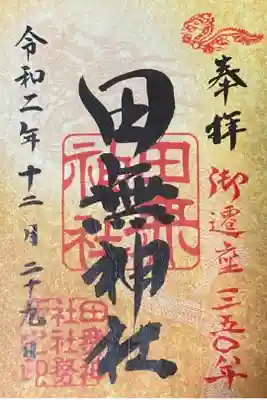 奉拝
御遷座三五〇年
田無神社
田無神社
令和二年十二月二十九日
田無神
社社務
所之印